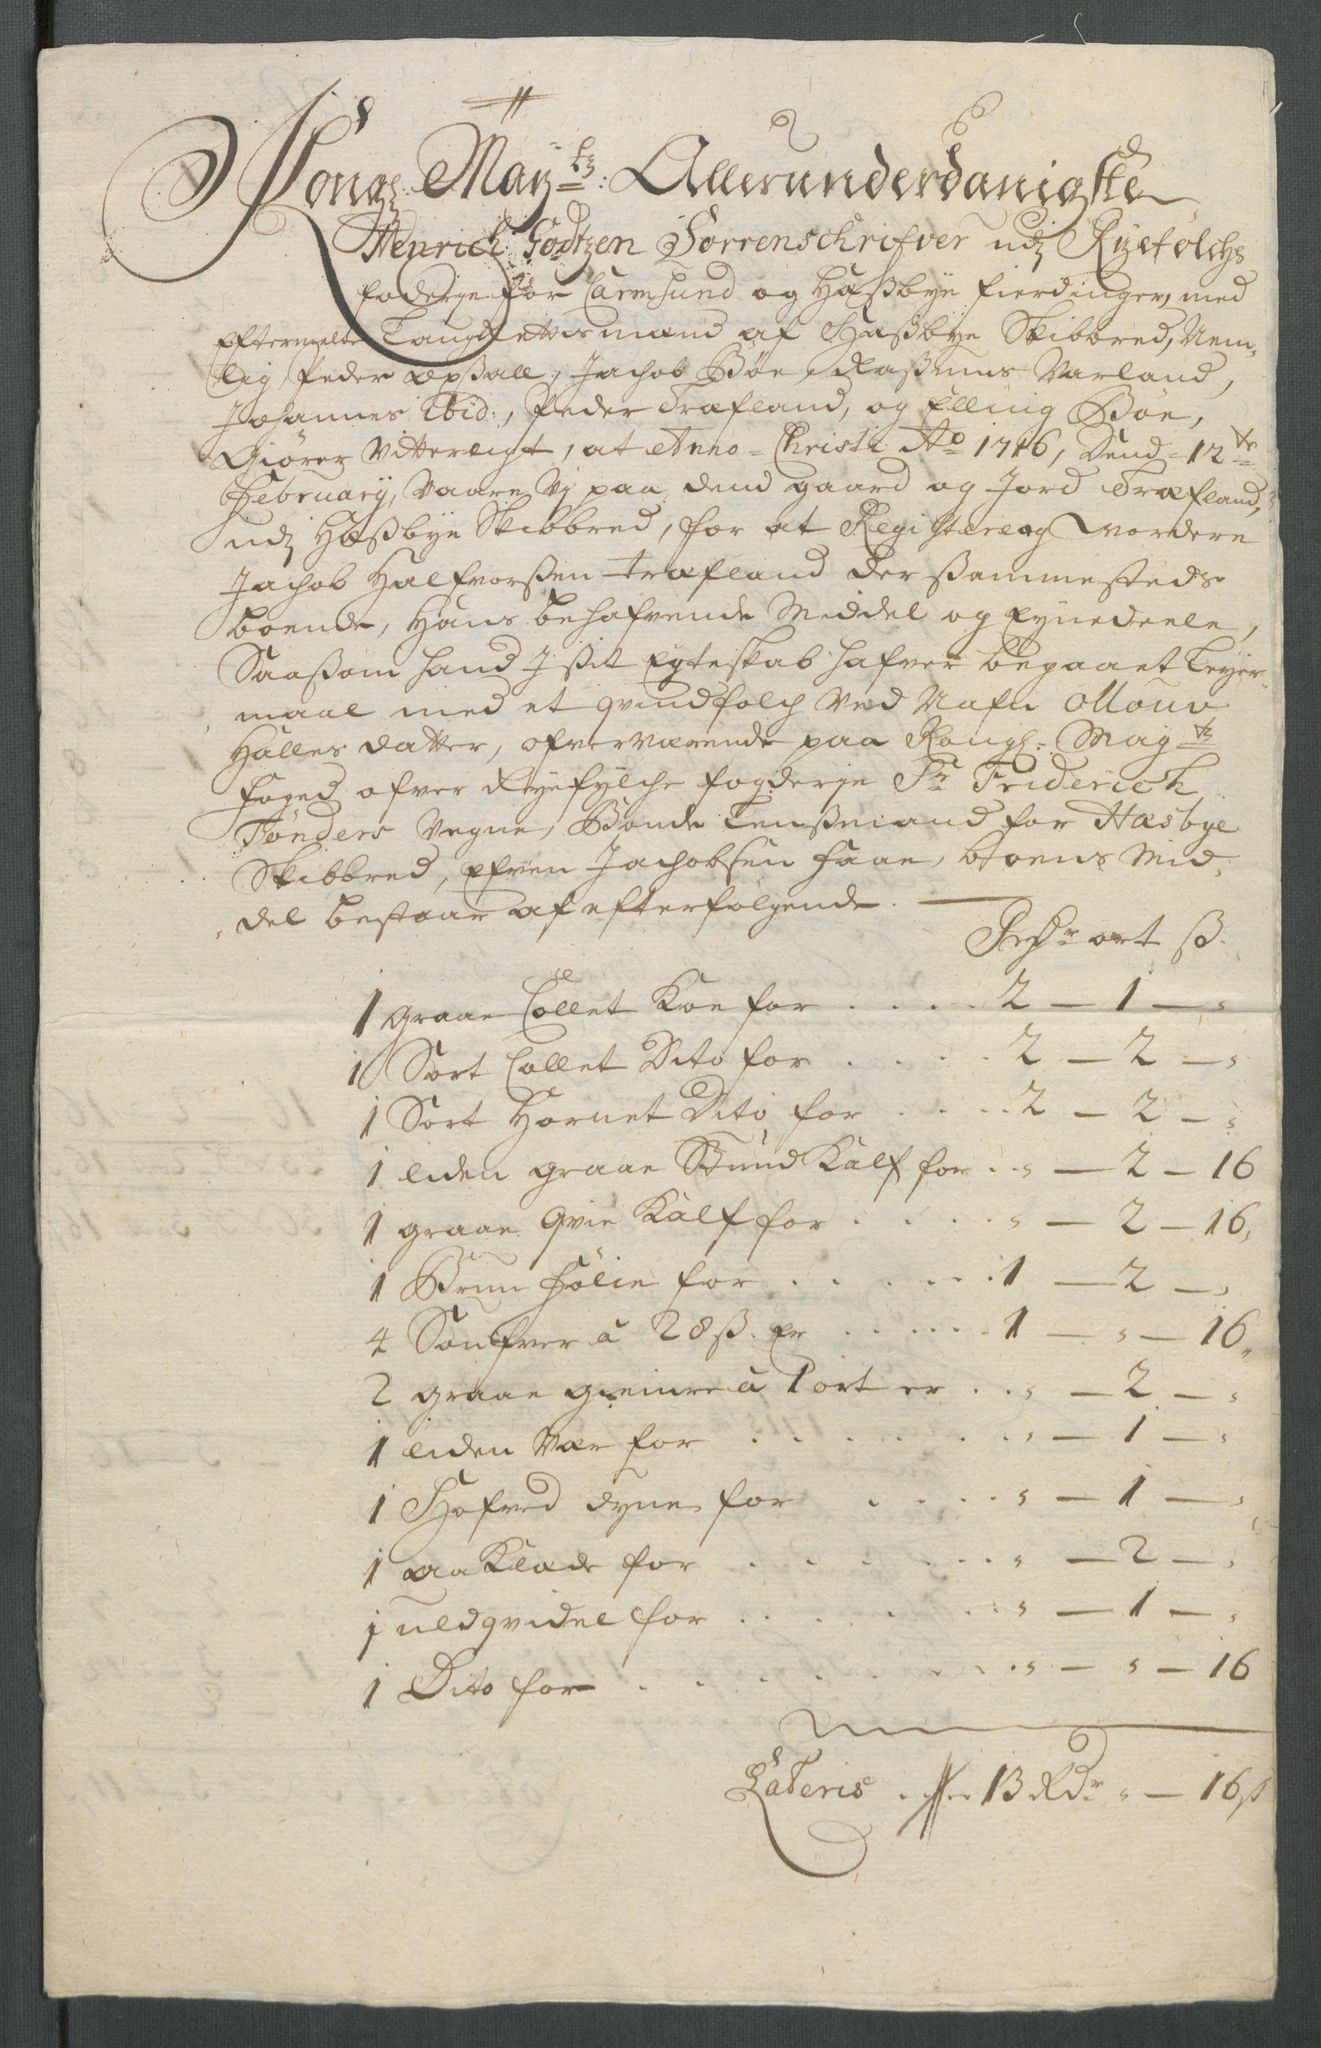 Kongl: May:tz: Allerunderdanigste
Henrich Godtzen Sorrenschrifver udj Ryefølchs
foderje for Carmsund og Hæßbye fierdinger, med
Eftermelte Laugrettismænd af Hæßbye Skibbred, Nem-
lig, Peder Opsall, Jachob Bøe, Raßmus Varland,
Johannes Ibid:, Peder Træfland, og Elling Bøe,
Giører Vitterligt, at Anno Christi Ao 1716, Dend 12te
February, Vaare Vj paa dend gaard og Jord Træfland,
udj Hæßbye Skibbred, for at Registere og vordere
Jachob Halfvorßen Træfland der sammesteds
boende, Hans behafvende Middel og Eyendeele,
Saasom hand J sit Egteskab hafver begaaet Leyer-
maal med et qvindfolch Ved Nafn Mouv
Halles datter, ofverværende paa Kongl: Mayts
foged ofver Ryefylche fogderje Sr Friderich
Tønders Vegne, Bonde Lensmand for Hæsbye
Skibbred, Efven Jachobsen Haae, boens Mid-
del bestaar af efterfølgende.
Rdr ort ß.
1 graae Collet Koe for . . . . 2 — 1 — „
1 Sort Collet Dito for . . . . 2 — 2 — „
1 Sort Hornet Dito for . . . . 2 — 2 — „
1 liden graae Stud Kalf for . . „ — 2 — 16
1 graae Qvie Kalf for . . . . „ — 2 — 16
1 Brun Følie for . . . . . . 1 — 2 — „
4 Saufver à 28 ß. Er . . . . . 1 — „ — 16
2 graae gieeure à 1 ort er . . „ — 2 — „
1 liden Vær for . . . . . . . „ — 1 — „
1 Hofved dyne for . . . . „ — 1 — „
1 aaKlæde for . . . . . . . „ — 2 — „
1 uldqvidel for . . . . . . „ — 1 — „
1 Dito for . . . . . . . . „ — „ — 16
Lateris . . 13 Rdr „ — 16 ß